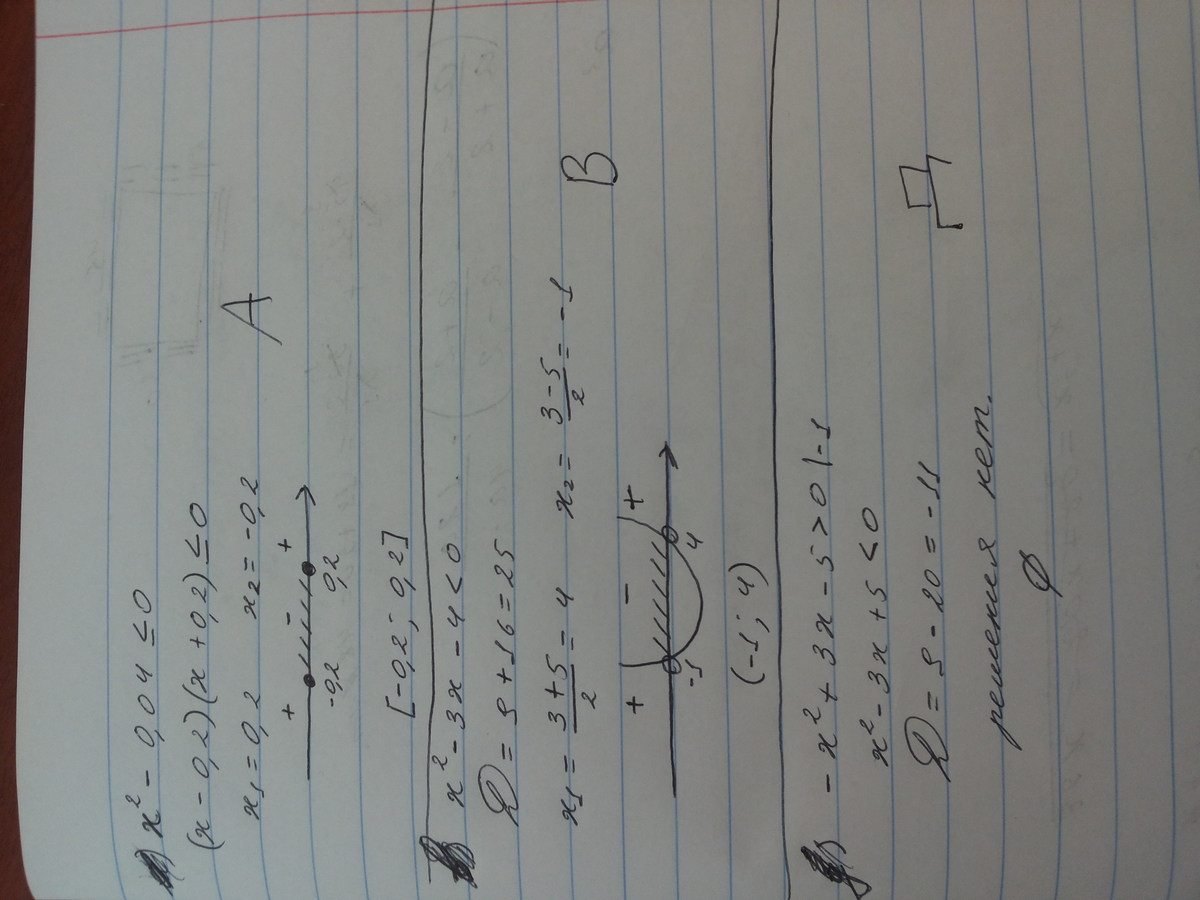 x² - 0,04 ≤ 0
(x - 0,2)(x + 0,2) ≤ 0
x₁ = 0,2 x₂ = -0,2 А
+ - +
-0,2 0,2
[-0,2; 0,2]
x² - 3x - 4 < 0
D = 9 + 16 = 25
x₁ = (3+5)/2 = 4 x₂ = (3-5)/2 = -1 В
+ - +
-1 4
(-1; 4)
-x² + 3x - 5 > 0 |-1
x² - 3x + 5 < 0
D = 9 - 20 = -11 Д
решения нет.
∅